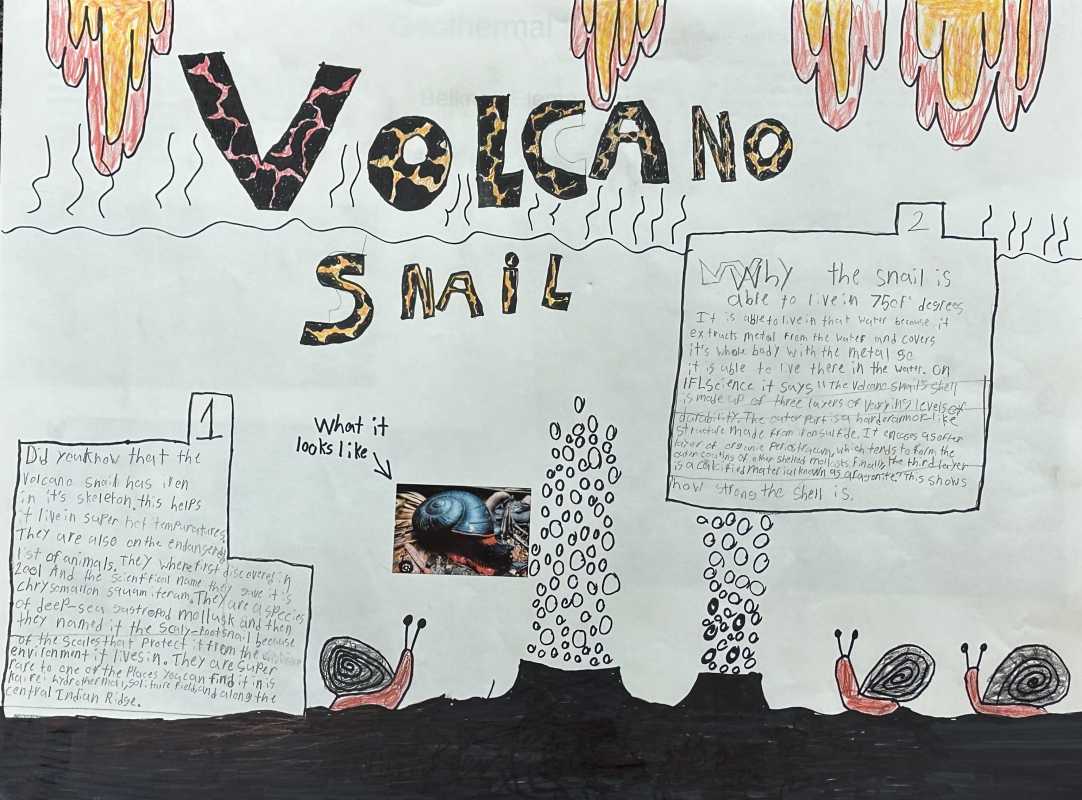 VOLCANO
SNAIL
2
Why the snail is
able to live in 750f° degrees
It is able to live in that water because it
extracts metal from the water and covers
it's whole body with the metal so
it is able to live there in the water. On
IFLScience it says "The volcano snail's shell
is made up of three layers of varying levels of
durability. The outer part is a harder armor-like
structure made from iron sulfide. It encases a softer
layer of organic Periostracum, which tends to form the
outer coating of other shelled mollusks. Finally, the third layer
is a calcified material known as aragonite." This shows
how strong the shell is.
1
Did you know that the
volcano snail has iren
in it's skeleton, this helps
it live in super hot tempuratures.
They are also on the endangerd
list of animals. They where first discovered in
2001 And the scientfical name they gave it is
chrysomallon squamiferum. They are a species
of deep-sea gastropod mollusk and then
they named it the scaly-footsnail because
of the scales that protect it from the
environment it lives in. They are super
rare to one of the places you can find it in is
kairei hydrothermal, solitaire field, and along the
central Indian Ridge.
What it
looks like
Geothermal